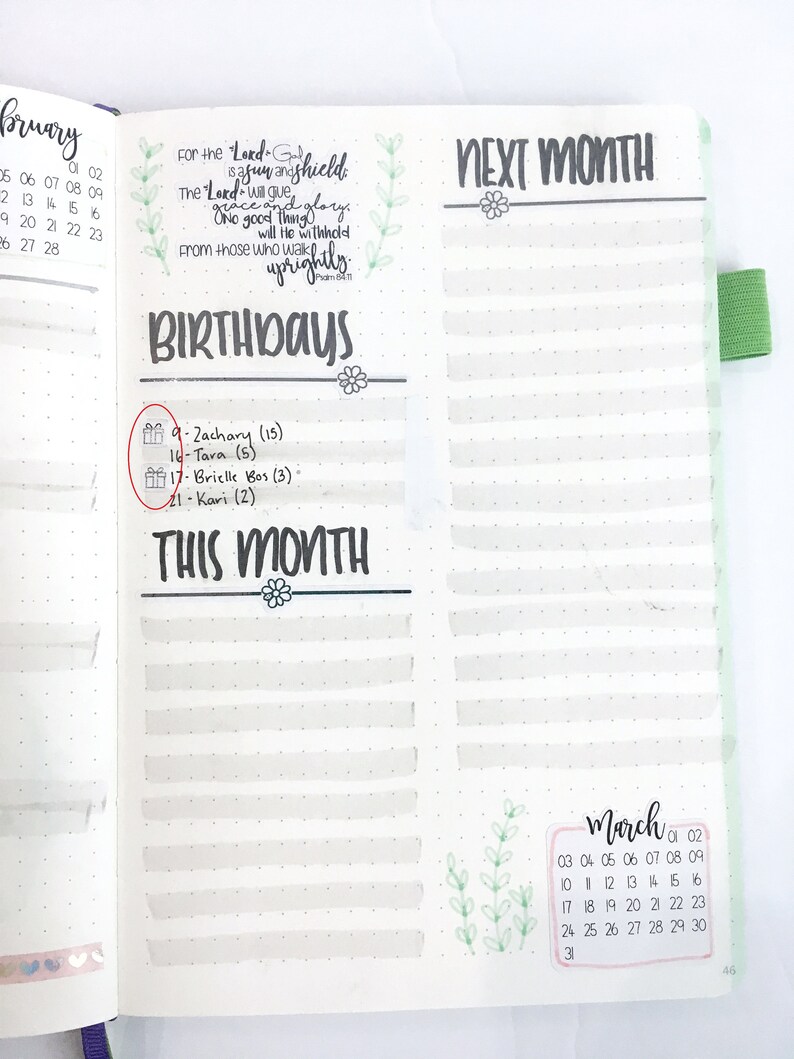 bruary
01 02
05 06 07 08 09
12 13 14 15 16
19 20 21 22 23
26 27 28
For the Lord God
is a sun and shield;
The Lord will give
grace and glory.
No good thing
will He withhold
From those who walk
uprightly.
Psalm 84:11
BIRTHDAYS
9 - Zachary (15)
16 - Tara (5)
17 - Brielle Bos (3)
21 - Kari (2)
THIS MONTH
NEXT MONTH
March
01 02
03 04 05 06 07 08 09
10 11 12 13 14 15 16
17 18 19 20 21 22 23
24 25 26 27 28 29 30
31
46